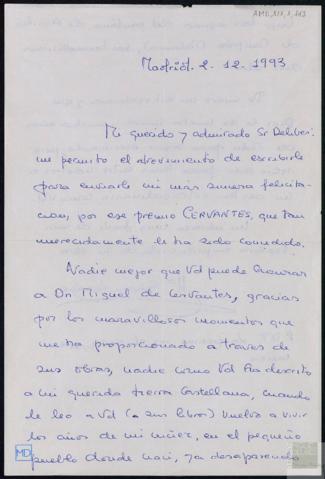 AMD,XIX,1,113
Madrid. 2-12-1993
Mi querido y admirado Sr Delibes:
me permito el atrevimiento de escribirle
para enviarle mi más sincera felicita-
cion, por ese premio CERVANTES, que tan
merecidamente le ha sido concedido.
Nadie mejor que Vd puede honrar
a Dn Miguel de Cervantes, gracias
por los maravillosos momentos que
me ha proporcionado a traves de
sus obras, nadie como Vd ha descrito
a mi querida tierra Castellana, cuando
le leo a Vd (a sus libros) vuelvo a vivir
los años de mi niñez, en el pequeño
pueblo donde naci, ya desaparecido
MD